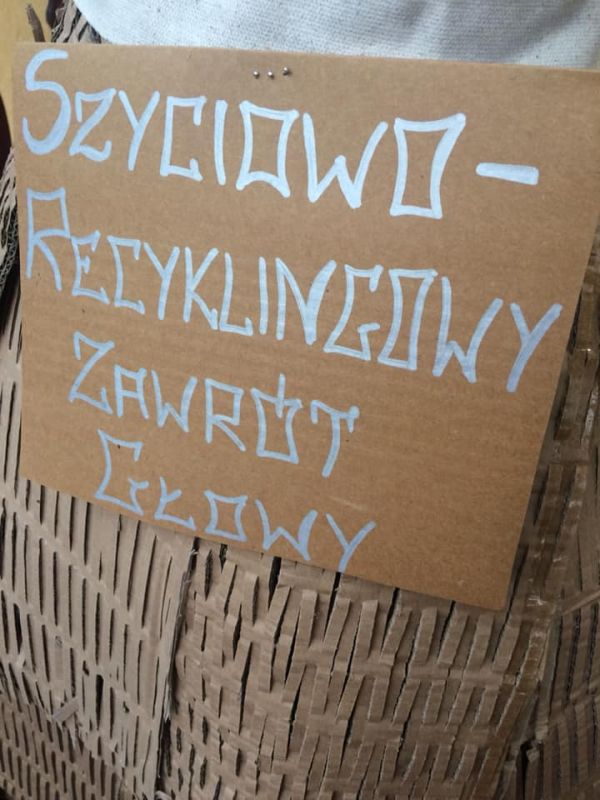 SZYCIOWO-
RECYKLINGOWY
ZAWRÓT
GŁOWY